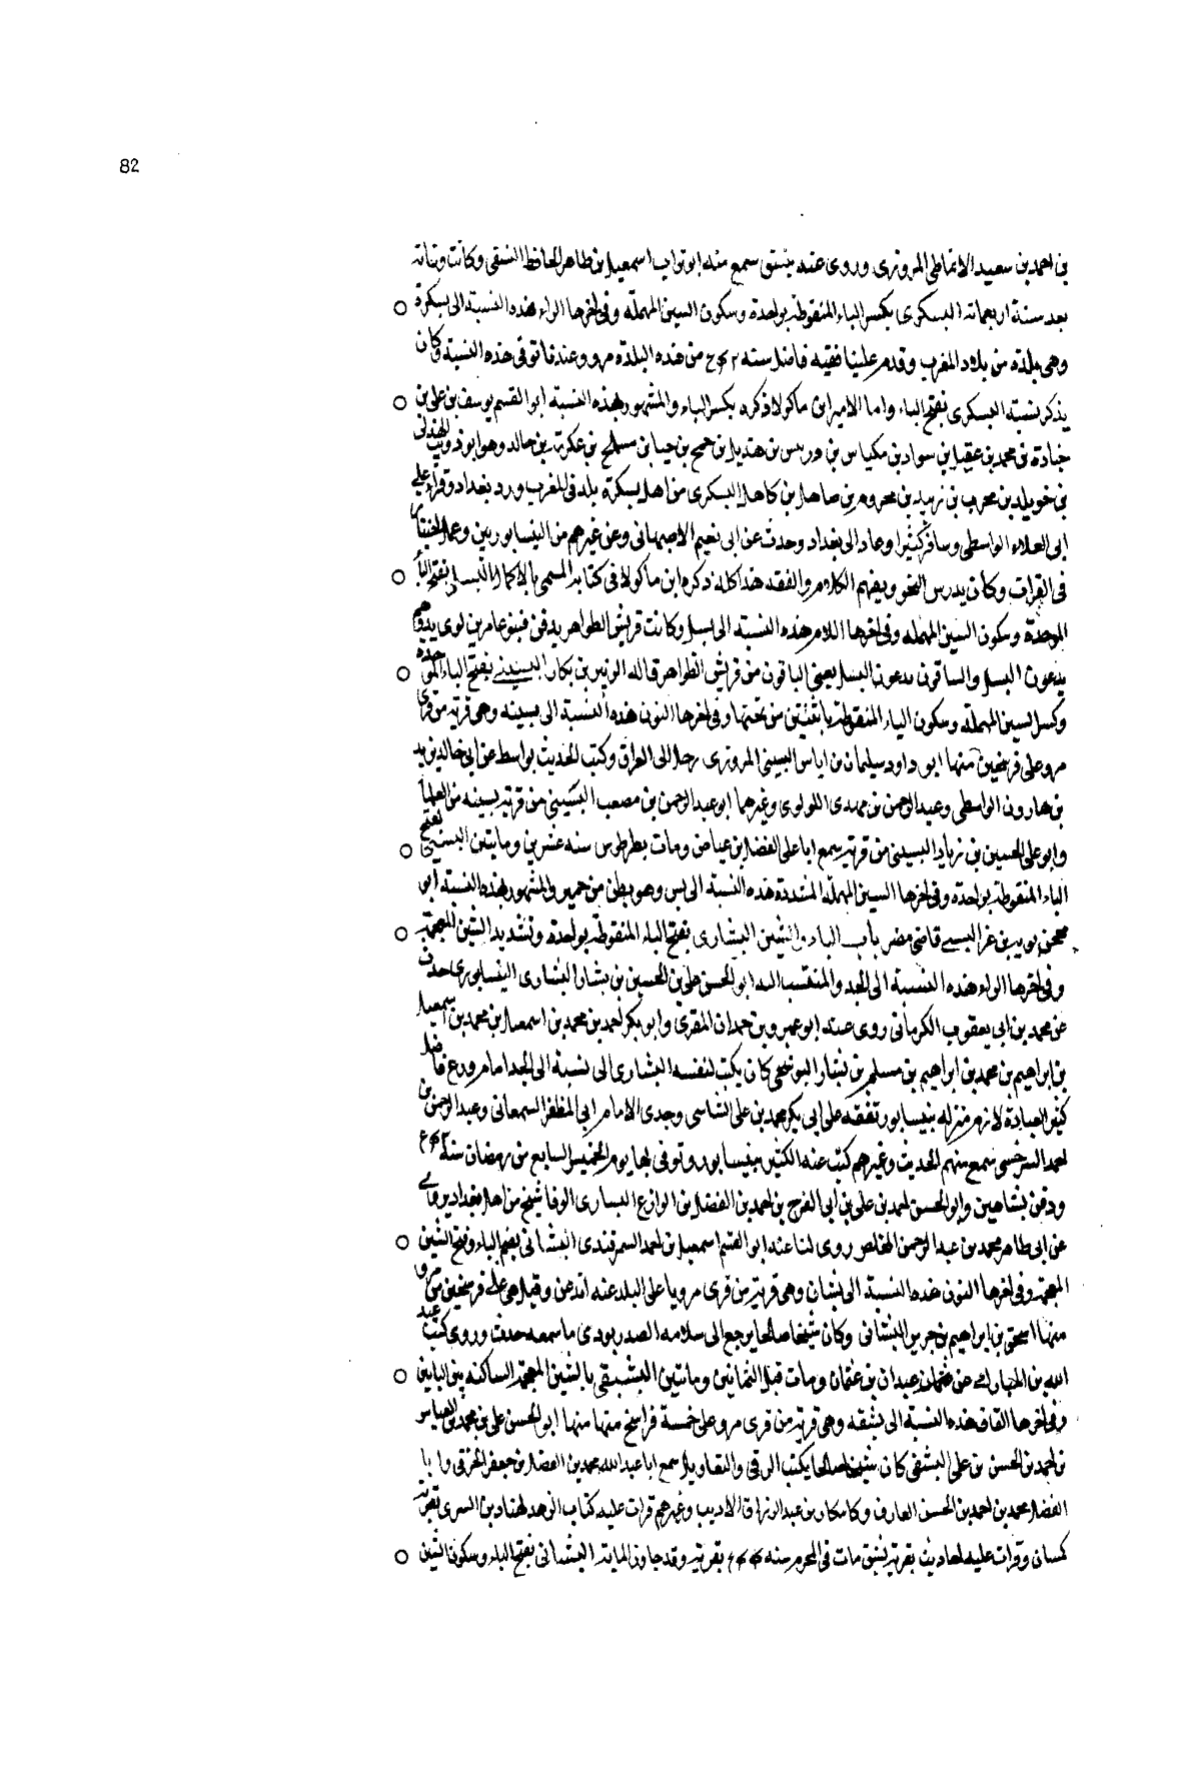 82
بن احمد بن سعيد الانماطي المروزي وروى عنه سمع منه ابو تراب اسمعيل بن طاهر الحافظ النسفي وكانت وفاته
بعد سنة اربعمائة البسكرى بكسر الباء المنقوطة بواحدة وسكون السين المهملة وفي اخرها الراء هذه النسبة الى بسكرة
وهي بلدة من بلاد المغرب وقدم علينا فقيه فاضل سنه من هذه البلدة مرو وعندنا توفي هذه النسبة وكان
يذكر بنسبته البسكرى بفتح الباء واما الامير ابن ماكولا ذكره بكسر الباء والمشهور بهذه النسبة ابو القسم يوسف بن علي بن
جبادة بن محمد بن عقيل بن سواد بن مكياس بن وربس بن هديد بن جمح بن حيا بن مستملح بن عكرمة بن خالد وهو ابو ذويب الهذلي
بن خويلد بن محرب بن زبيد بن مخزوم بن صاهل بن كاهل البسكرى من اهل بسكرة بلد في المغرب ورد بغداد وقراء علي
ابي العلاء الواسطي وسافر كثيرا وعاد الى بغداد وحدث عن ابي نعيم الاصبهاني وعن غيرهم من النيسابوريين وعمل اختيارا
في القرات وكان يدرس النحو ويفهم الكلام والفقه هذا كله ذكره ابن ماكولا في كتابه المسمى بالاكمال البسل بفتح البا
الموحدة وسكون السين المهملة وفي اخرها اللام هذه النسبة الى بسل وكانت قريش الظواهر يدفن فبنو عامر بن لوى يدوهم
يدعون البسل والباقون يدعون البسل يعني الباقون من قريش الظواهر قاله الزبير بن بكار البسيني بفتح الباء الموحدة
وكسر السين المهملة وسكون الياء المنقوطة باثنتين من تحتها وفي اخرها النون هذه النسبة الى بسينه وهي قرية من قرى
مرو على فرسخين منها ابو داود سليمان بن اياس البسيني المروزى رحل الى العراق وكتب الحديث بواسط عن ابي خالد يزيد
بن هارون الواسطي وعبد الرحمن بن مهدى اللولوى وغيرهما ابو عبد الرحمن بن مصعب البسيني من قرية بسينه من العلماء
وابو علي الحسين بن زياد البسيني من قرية سمع ابا علي الفضل بن عياض ومات بطرطوس سنه عشرين ومايتين البسي بفتح
الباء المنقوطة بواحدة وفي اخرها السين المهملة المشددة هذه النسبة الى بس وهو بطن من حمير والمشهور بهذه النسبة ابو
محجن توبة بن نمر البسي قاضي مصر باب الباء والشين البشارى بفتح الباء المنقوطة بواحدة وتشديد الشين المعجمة
وفي اخرها الراء هذه النسبة الى الجد والمنتسب اليه ابو الحسن علي بن الحسين بن بشار البشارى النيسابورى حدث
عن محمد بن ابي يعقوب الكرماني روى عنه ابو عمرو بن حمدان المقرى وابو بكر احمد بن محمد بن اسمعيل بن محمد بن اسمعيل
بن ابراهيم بن محمد بن ابراهيم بن مسلم بن بشار البوشنجي كان يكتب لنفسه البشارى الى نسبة الى الجد امام ورع فاضل
كثير العبادة لازم منزله بنيسابور تفقه على ابي بكر محمد بن علي الشاسي وجدى الامام ابي المظفر السمعاني وعبد الرحمن بن
احمد السرخسي سمع منهم الحديث وغيرهم كتبت عنه الكثير بنيسابور وتوفي بها يوم الخميس السابع من رمضان سنة
ودفن بشاهين وابو الحسن احمد بن علي بن ابي الفرج بن احمد بن الفضل بن الوازع البسارى الوفا شيخ من اهل بغداد يرمى
عن ابي طاهر محمد بن عبد الرحمن المخلص روى لنا عنه ابو القسم اسمعيل بن احمد السمرقندى البشاني بضم الباء وفتح الشين
المعجمة وفي اخرها النون هذه النسبة الى بشان وهي قرية من قرى مرو يا على البلد عنه اندعن وقيل هي على فرسخين من مرو
منها اسحق بن ابراهيم بن جرير البشاني وكان شيخا صالحا يرجع الى سلامة الصدر يودى ما سمعه حدث وروى كتب عبد
الله بن المبارك عن عثمان عبدان بن عثمان ومات قبل الثمانين ومايتين البشبقي بالشين المعجمة الساكنة بين البابين
وفي اخرها القاف هذه النسبة الى بشبقه وهي قرية من قرى مرو على خمسة فراسخ منها منها ابو الحسن علي بن محمد بن العباس
بن احمد بن الحسن بن علي البشبقي كان شيخا صالحا يكتب الرقى والتعاويذ سمع ابا عبد الله محمد بن الفضل بن جعفر الخرقي وابا
الفضل محمد بن احمد بن الحسن العارف وكامكار بن عبد الرزاق الاديب وغيرهم قرات عليه كتاب الزهد لهناد بن السرى بقرية
كمسان وقرات عليه احاديث بقرية بشبق مات في المحرم سنه بقريته وقد جاوز الماية البشتاني بفتح الباء وسكون الشين